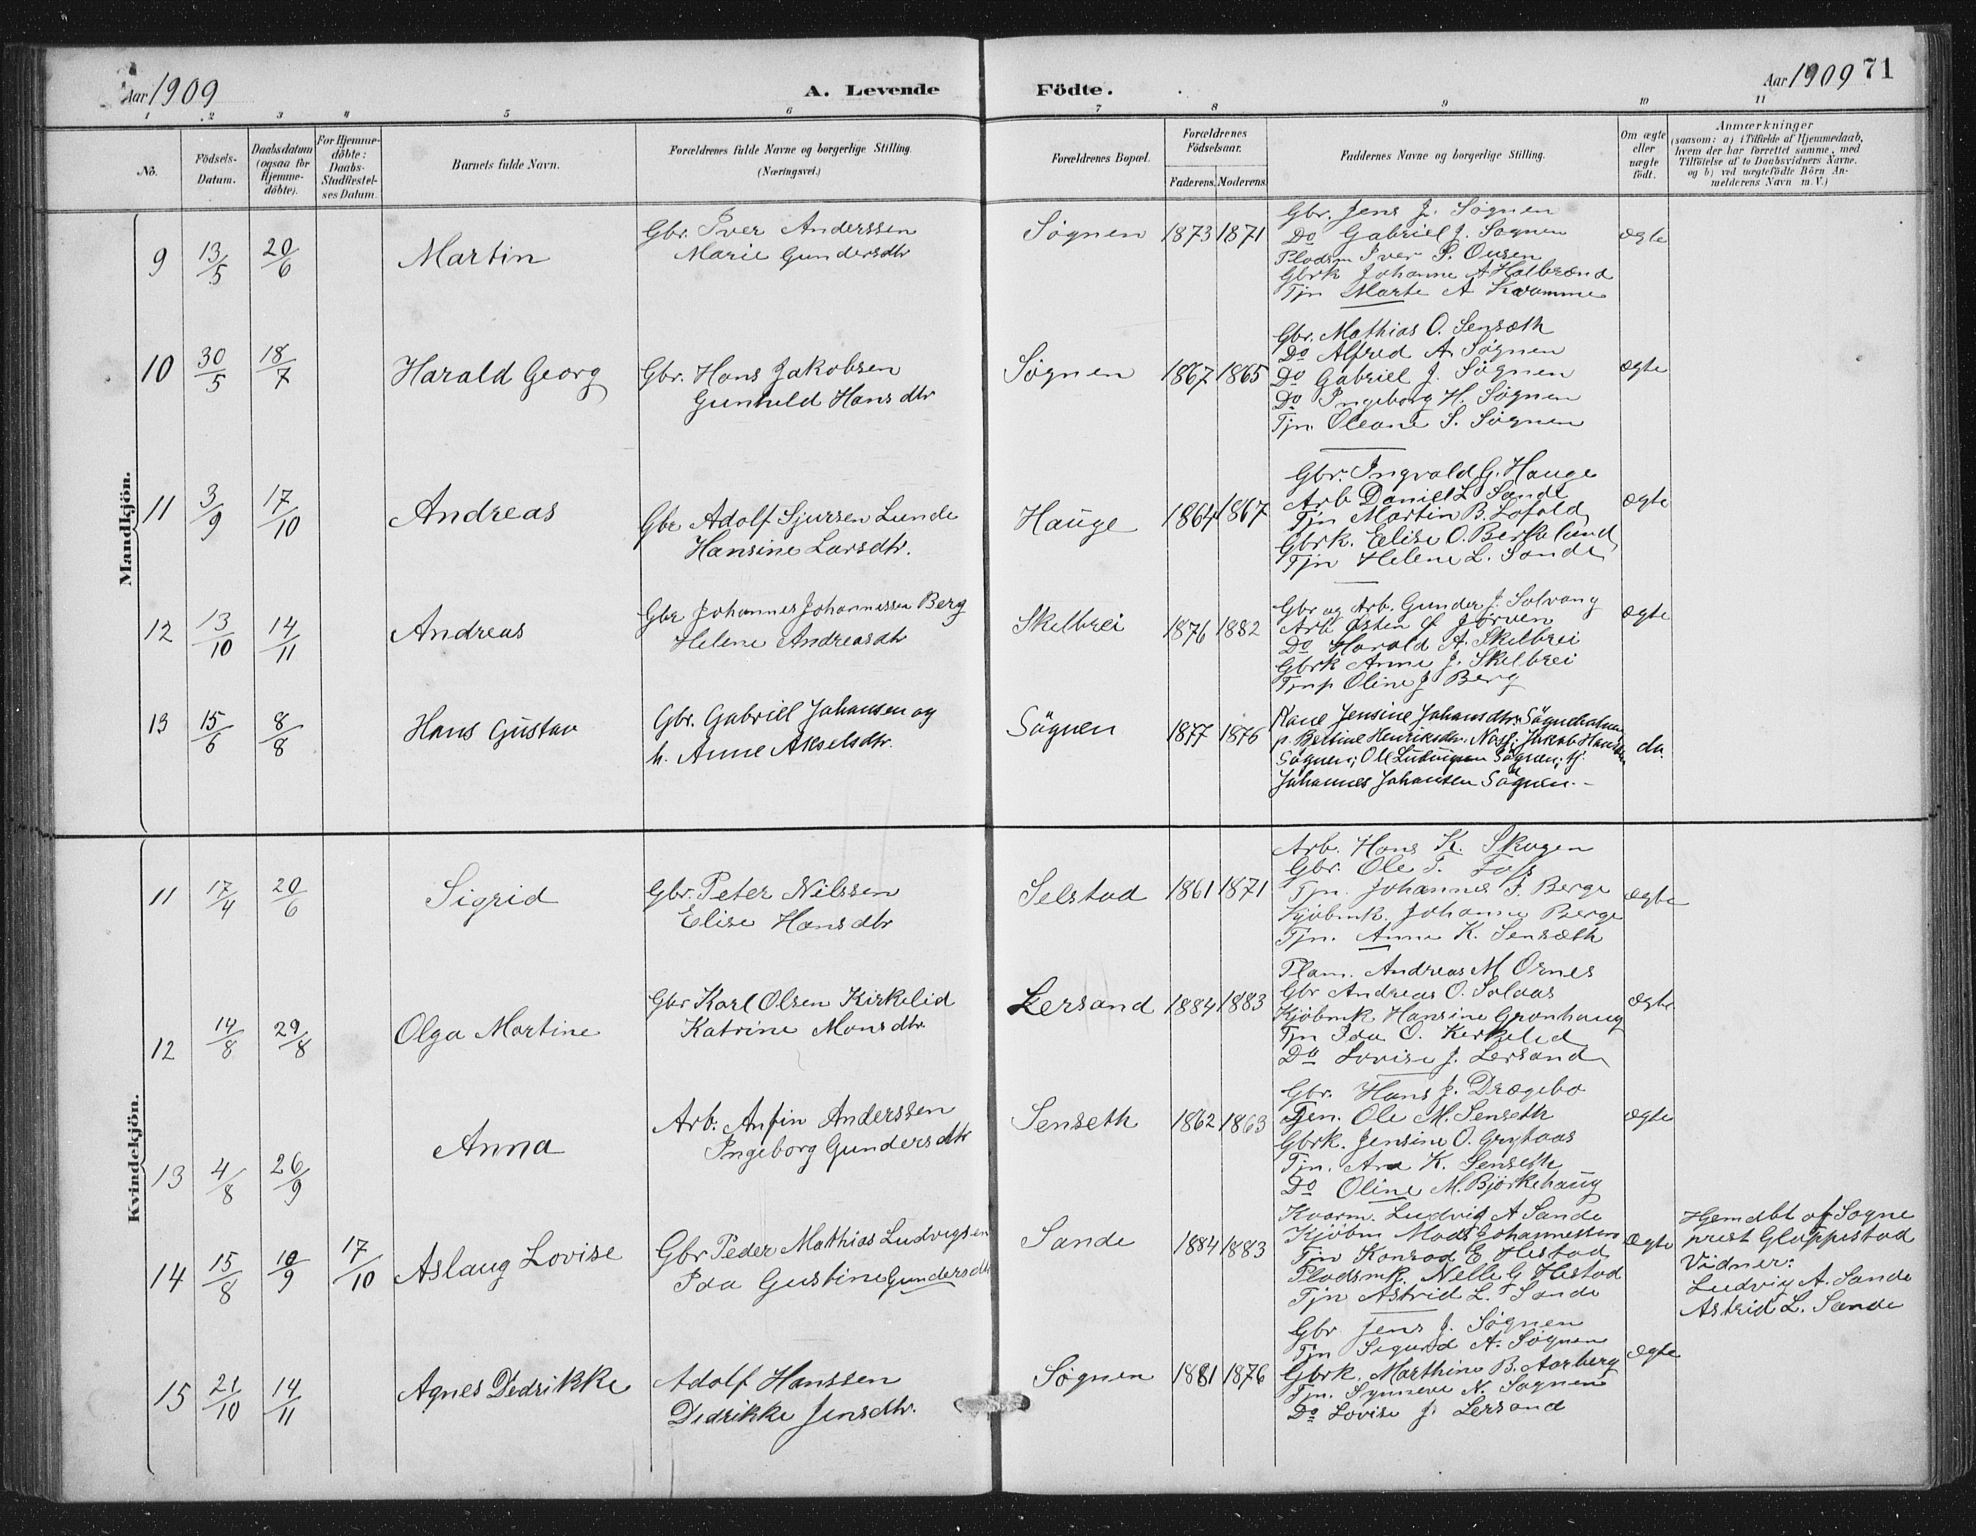 Aar 1909
A. Levende
Födte.
Aar 1909
71
1 2 3 4 5 6 7 8 9 10 11
No.
Födsels-Datum.
Daabsdatum (ogsaa for Hjemme-döbte).
For Hjemme-döbte: Daabs-Stadfæstel-ses Datum.
Barnets fulde Navn.
Forældrenes fulde Navne og borgerlige Stilling. (Næringsvei.)
Forældrenes Bopæl.
Forældrenes Födselsaar.
Faderens. Moderens.
Faddernes Navne og borgerlige Stilling.
Om ægte eller uægte födt.
Anmærkninger
(saasom: a) i Tilfælde af Hjemmedaab,
hvem der har forrettet samme, med
Tilföielse af to Daabsvidners Navne.
og b) ved uægtefödte Börn An-
melderens Navn m. V.)
Mandkjön.
9 13/5 20/6 Martin
Gbr. Iver Anderssen
Marie Gundersdtr
Søgnen 1873 1871
Gbr. Jens J. Søgnen
Do Gabriel J. Søgnen
Pladsm Iver P. Ousen
Gbrk Johanne A Halbrend
Tjn Marte A Kvamme
ægte
10 30/5 18/7 Harald Georg
Gbr. Hans Jakobsen
Gunhild Hansdtr
Søgnen 1867 1865
Gbr. Mathias O. Senseth
Do Alfred A. Søgnen
Do Gabriel J. Søgnen
Do Ingeborg H. Søgnen
Tjn. Oleane S. Søgnen
ægte
11 3/9 17/10 Andreas
Gbr Adolf Sjursen Lunde
Hansine Larsdtr.
Hauge 1864 1867
Gbr. Ingvald G. Hauge
Arb Daniel L Sande
Tjn Martin B. Lofald
Gbrk. Elise O. Berkeland
Tjn Helene L. Sande
ægte
12 13/10 14/11 Andreas
Gbr Johannes Johannessen Berg
Helene Andreasdtr
Skelbrei 1876 1882
Gbr og Arb. Gunder J. Solvang
Arb Østen J Jørven
Do Harald A. Skelbrei
Gbrk Anne J. Skelbrei
Tmp Oline J Berg
ægte
13 15/6 8/8 Hans Gustav
Gbr. Gabriel Johansen og
h. Anne Akselsdtr.
Sögnen 1877 1876
Kone Jensine Johansdtr. Sögneholmen
p. Bertine Henriksdtr. Noss; Jakob Hansen
Sögnen; Ole Ludvigsen Sögnen; tj.
Johannes Johansen Sögnen.-
do.
Kvindekjön.
11 17/4 20/6 Sigrid
Gbr. Peter Nilssen
Elise Hansdtr
Selstad 1861 1871
Arb. Hans K. Skogen
Gbr. Ole T. Foss
Tjn. Johannes J. Berge
Kjøbmk. Johanne Berge
Tjn. Anna K. Senseth
ægte
12 14/8 29/8 Olga Martine
Gbr Karl Olsen Kirkelid
Katrine Monsdtr
Lersand 1884 1883
Plam. Andreas M Ornes
Gbr Andreas O. Solaas
Kjøbmk Hansine Grønhaug
Tjn Ida O. Kirkelid
Do Lovise J. Lersand
ægte
13 4/8 26/9 Anna
Arb. Anfin Anderssen
Ingeborg Gundersdtr
Senseth 1862 1863
Gbr. Hans J. Drægebo
Tjen. Ole M. Senseth
Gbrk. Jensine O. Grytaas
Tjn. Ara K. Senseth
Do Oline M. Björkehaug
ægte
14 15/8 10/9 17/10 Aslaug Lovise
Gbr Peder Mathias Ludvigsen
Ida Gustine Gundersdtr
Sande 1884 1883
Kvarm. Ludvig A Sande
Kjøbm Mads Johannessen
Tjn Konrad E Hestad
Pladsmk. Nelle G Hestad
Tjn Astrid L. Sande
ægte
Hjemdbt af Sogne
prest Gloppestad
Vidner:
Ludvig A. Sande
Astrid L. Sande
15 21/10 14/11 Agnes Dedrikke
Adolf Hanssen
Dedrikke Jensdtr.
Søgnen 1881 1876
Gbr Jens J. Søgnen
Tjn Sigurd A. Søgnen
Gbrk. Marthine B. Aarberg
Tjn. Synneve N. Søgnen
Do Lovise J. Lersand
ægte